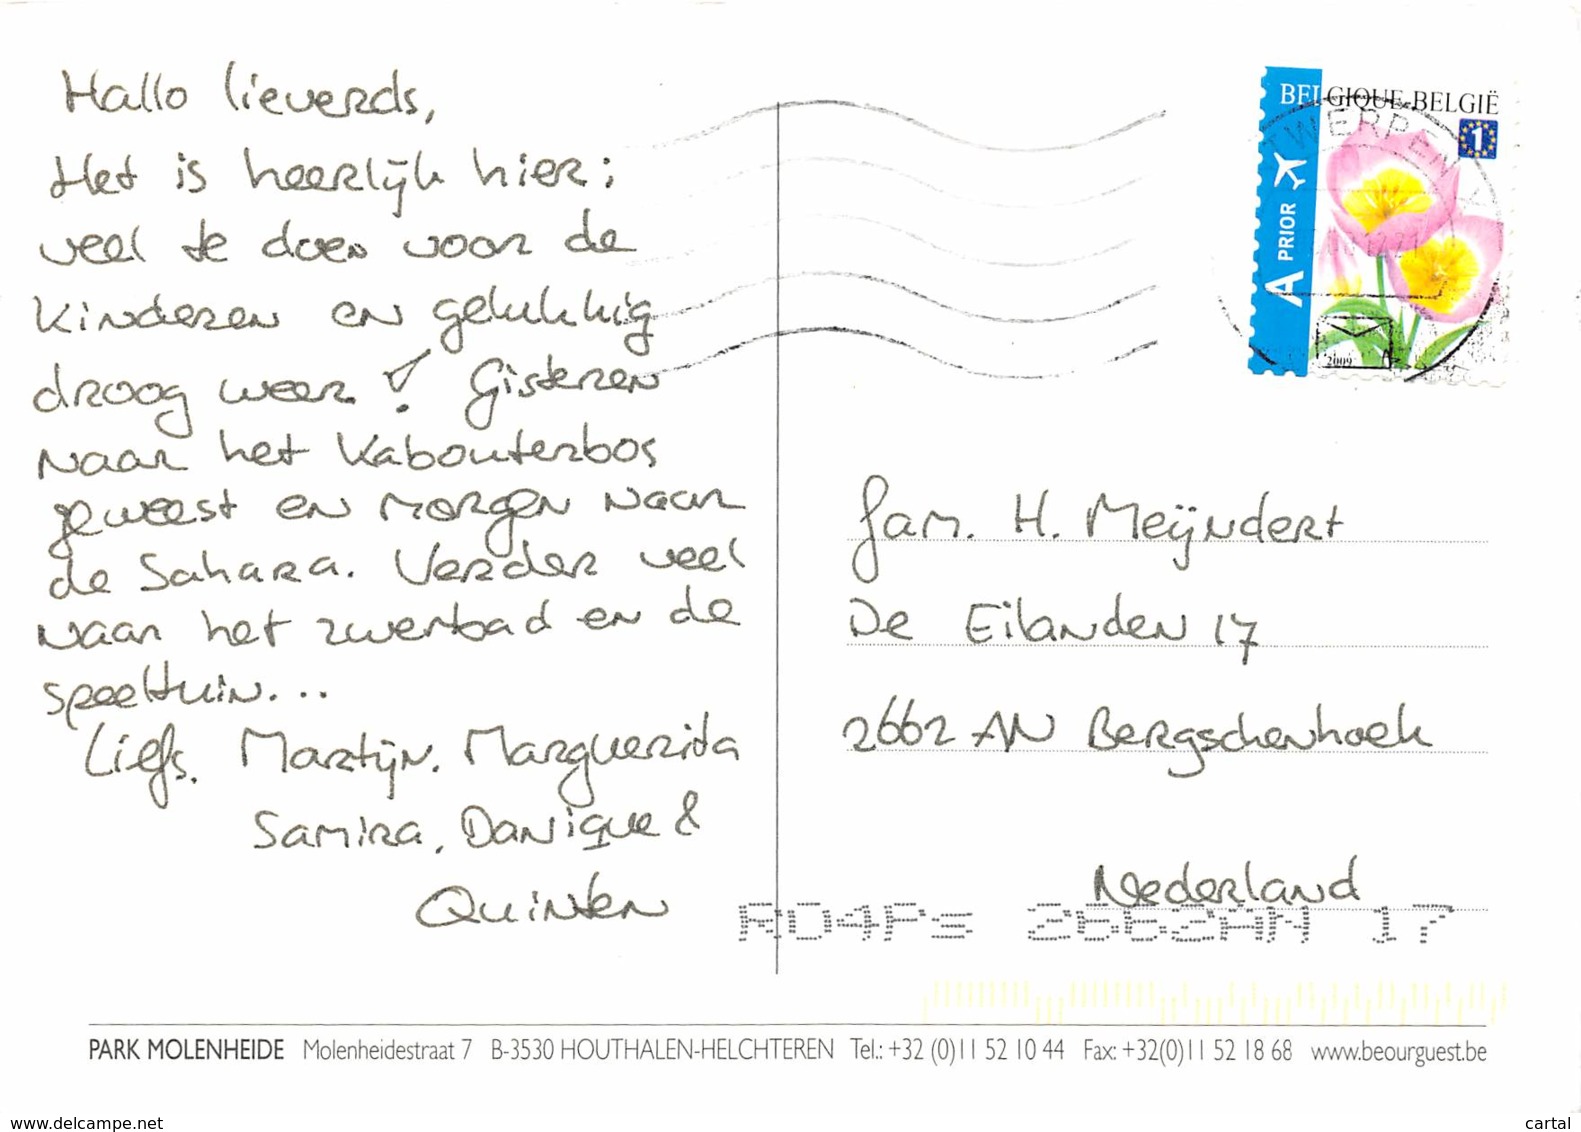 Hallo lieverds,
Het is heerlijk hier;
veel te doen voor de
kinderen en gelukkig
droog weer! Gisteren
naar het Kabouterbos
geweest en morgen naar
de Sahara. Verder veel
naar het zwembad en de
speeltuin...
Liefs, Martijn, Marguerida
Samira, Danique &
Quinten
BELGIQUE-BELGIË
1
A PRIOR
2009
Fam. H. Meijndert
De Eilanden 17
2662 AN Bergschenhoek
Nederland
RD4Ps 2662AN 17
PARK MOLENHEIDE Molenheidestraat 7 B-3530 HOUTHALEN-HELCHTEREN Tel.: +32 (0)11 52 10 44 Fax: +32(0)11 52 18 68 www.beourguest.be
www.delcampe.net
cartal